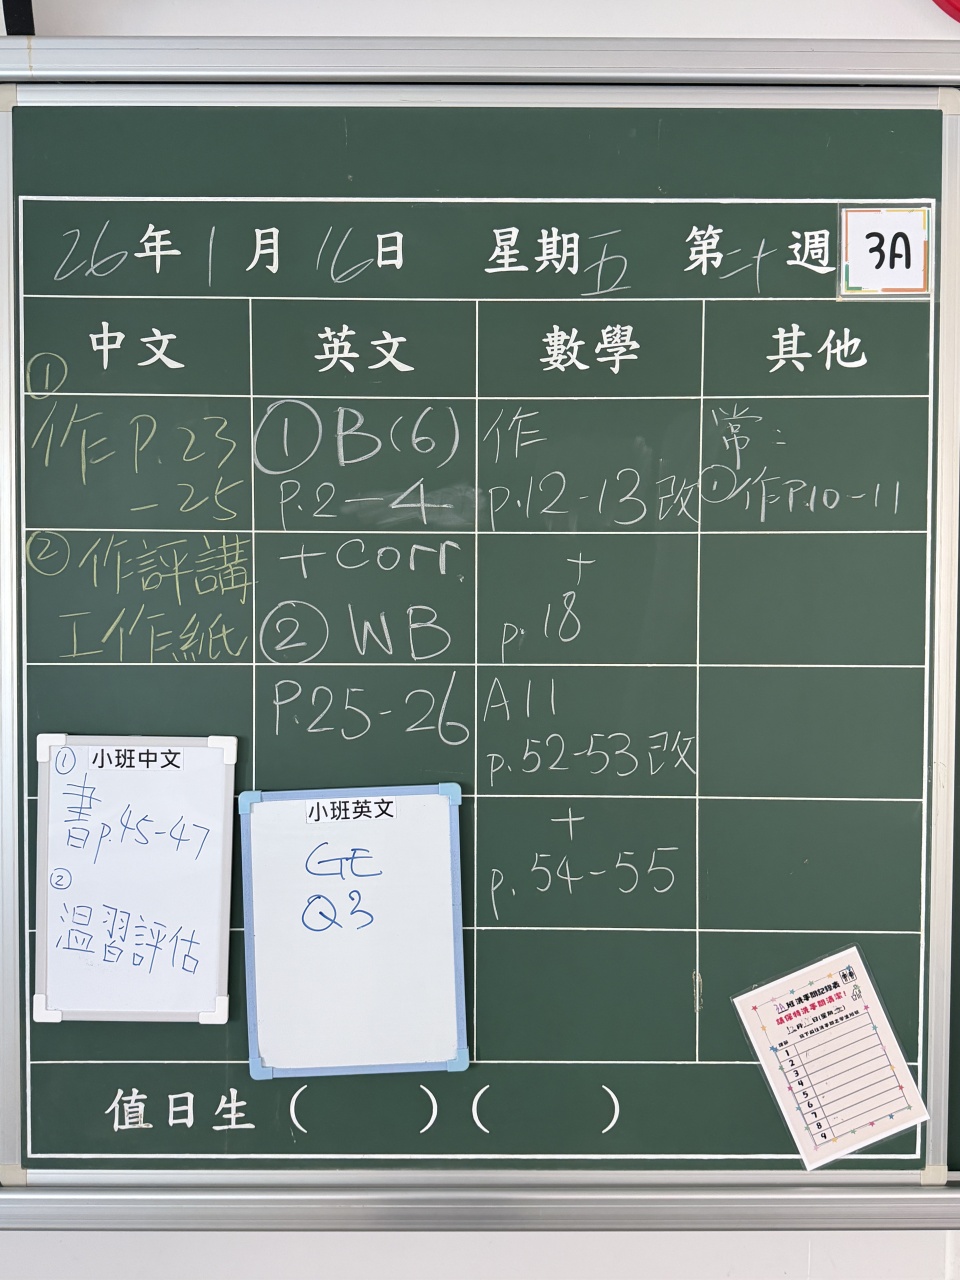 26年1月16日 星期五 第二十週 3A
中文 英文 數學 其他
①
作 P.23
-25
② 作評講
工作紙
① B(6)
P.2-4
+ Corr.
② WB
P.25-26
作
p.12-13改
+
p.18
A11
p.52-53改
+
p.54-55
常：
①作P.10-11
小班中文
①
書p.45-47
②
溫習評估
小班英文
GE
Q3
值日生（ ）（ ）
3A班洗手間記錄表
請保持洗手間清潔！
1
2
3
4
5
6
7
8
9